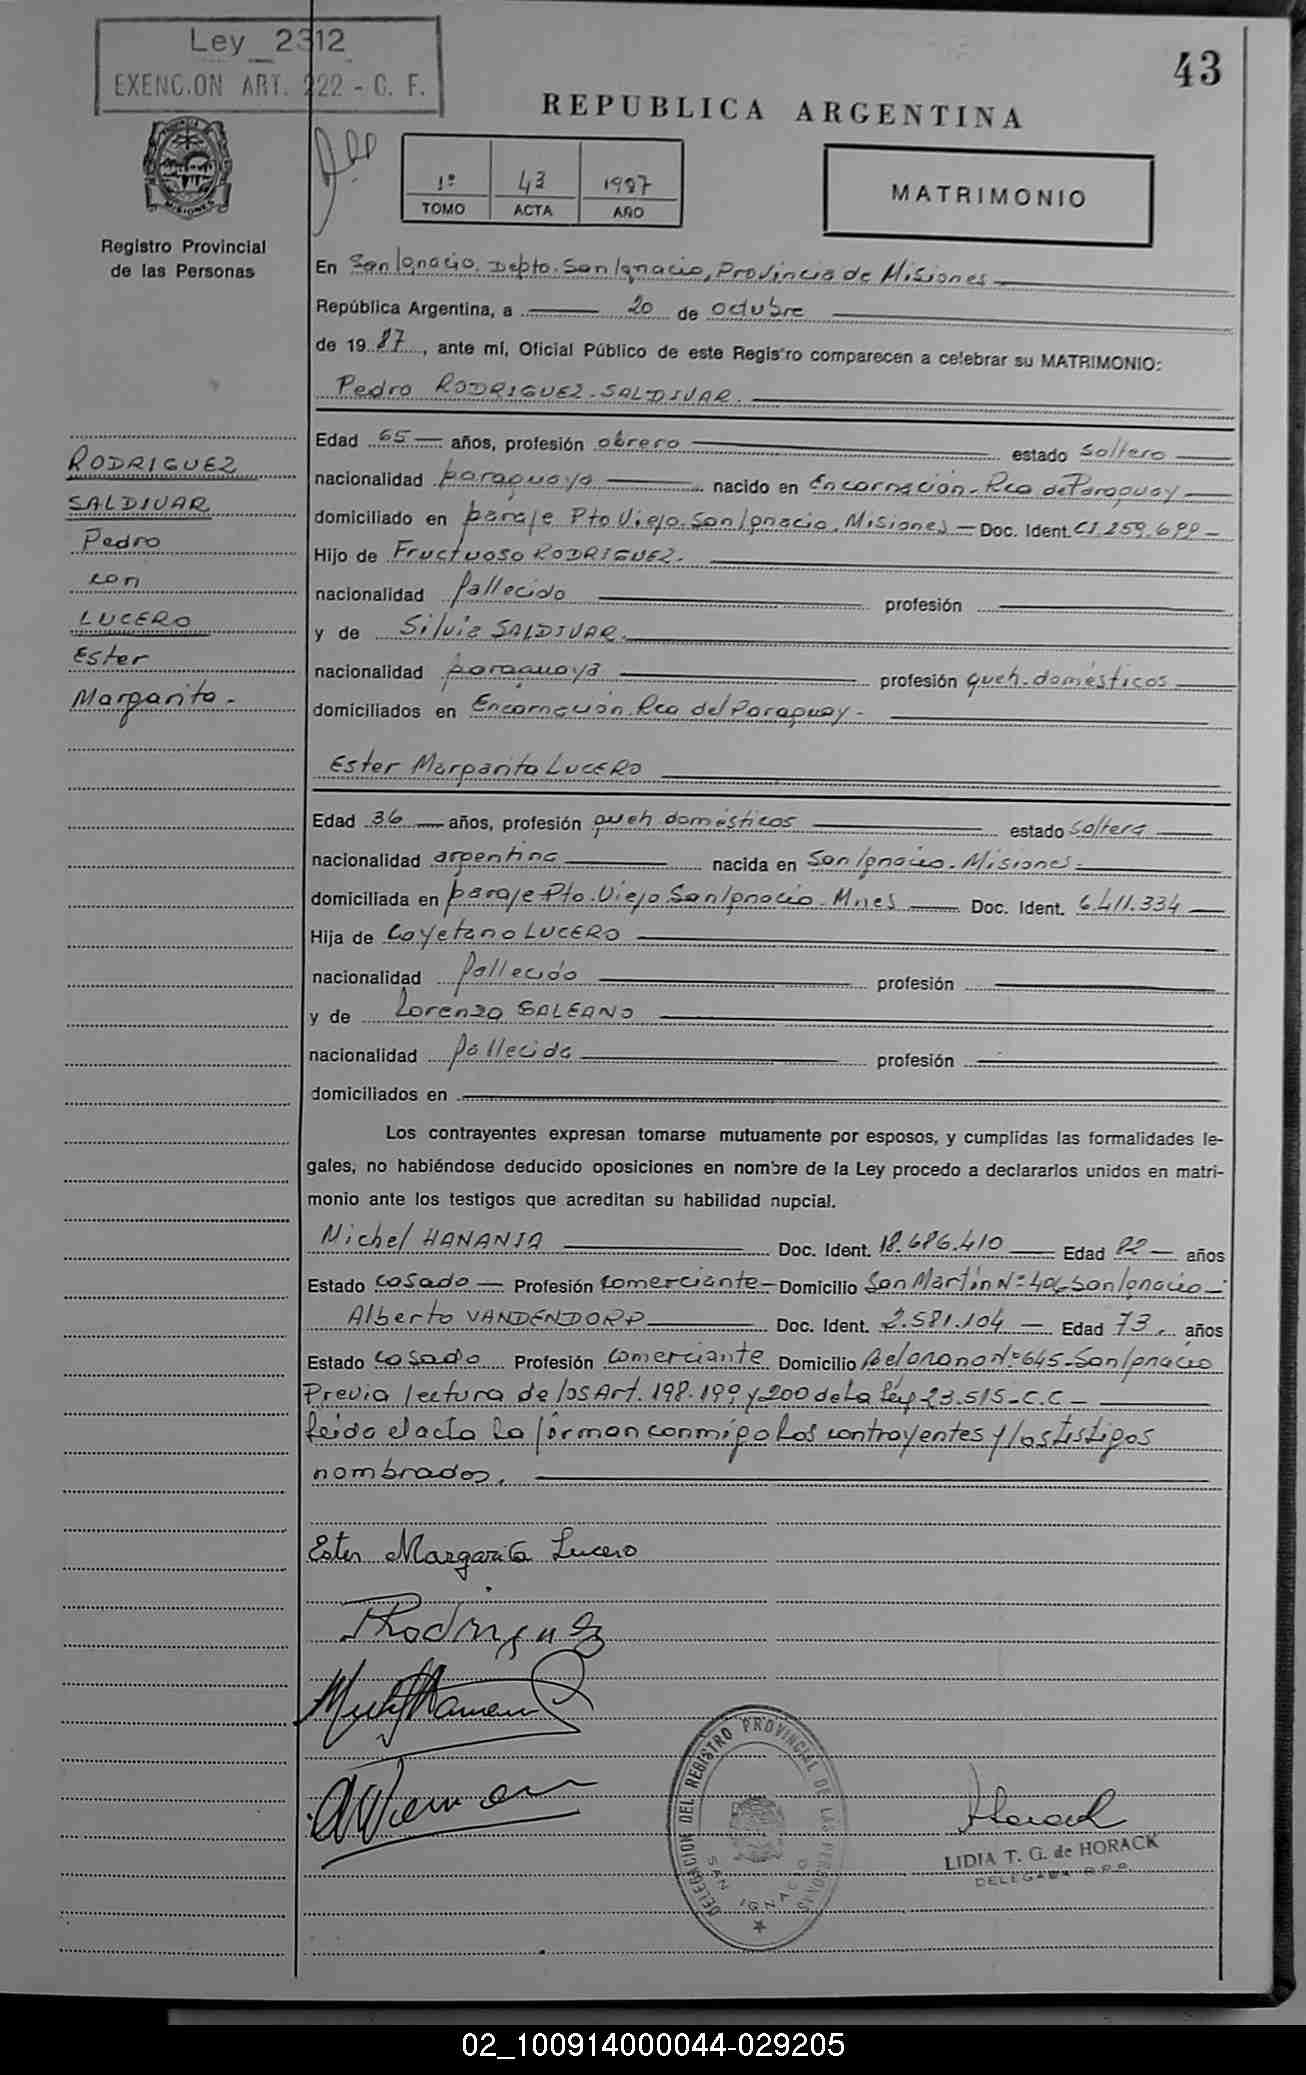 Ley 2312
EXENC.ON ART. 222 - C. F.
43
REPUBLICA ARGENTINA
1º 43 1987
TOMO ACTA AÑO
MATRIMONIO
MISIONES
Registro Provincial
de las Personas
En San Ignacio. Depto. San Ignacio, Provincia de Misiones
República Argentina, a 20 de octubre
de 1987, ante mí, Oficial Público de este Registro comparecen a celebrar su MATRIMONIO:
Pedro RODRIGUEZ-SALDIVAR.
RODRIGUEZ
SALDIVAR
Pedro
con
LUCERO
Ester
Margarita.-
Edad 65 años, profesión obrero estado soltero
nacionalidad paraguaya nacido en Encarnación-Rca de Paraguay
domiciliado en paraje Pto Viejo. San Ignacio. Misiones - Doc. Ident. CI.259.699-
Hijo de Fructuoso RODRIGUEZ.-
nacionalidad fallecido profesión
y de Silvia SALDIVAR.
nacionalidad paraguaya profesión queh. domésticos
domiciliados en Encarnación. Rca del Paraguay-
Ester Margarita LUCERO
Edad 36 años, profesión queh domésticos estado soltera
nacionalidad argentina nacida en San Ignacio. Misiones.
domiciliada en paraje Pto. Viejo San Ignacio. Mnes Doc. Ident. 6.411.334
Hija de Cayetano LUCERO
nacionalidad fallecido profesión
y de Lorenza GALEANO
nacionalidad fallecida profesión
domiciliados en
Los contrayentes expresan tomarse mutuamente por esposos, y cumplidas las formalidades le-
gales, no habiéndose deducido oposiciones en nombre de la Ley procedo a declararlos unidos en matri-
monio ante los testigos que acreditan su habilidad nupcial.
Michel HANANIA Doc. Ident. 18.686.410 Edad 82 años
Estado casado Profesión comerciante Domicilio San Martín Nº 406 San Ignacio
Alberto VANDENDORP Doc. Ident. 2.581.104 Edad 73 años
Estado casado Profesión comerciante Domicilio Belgrano Nº 645-San Ignacio
Previa lectura de los Art. 198-199 y 200 de La Ley 23.515-C.C-
leída el acta la firman conmigo Los contrayentes y los testigos
nombrados.
Ester Margarita Lucero
Rodriguez
DELEGACION DEL REGISTRO PROVINCIAL DE LAS PERSONAS
SAN IGNACIO
Horack
LIDIA T. G. de HORACK
DELEGADA R.P.P.
02_100914000044-029205